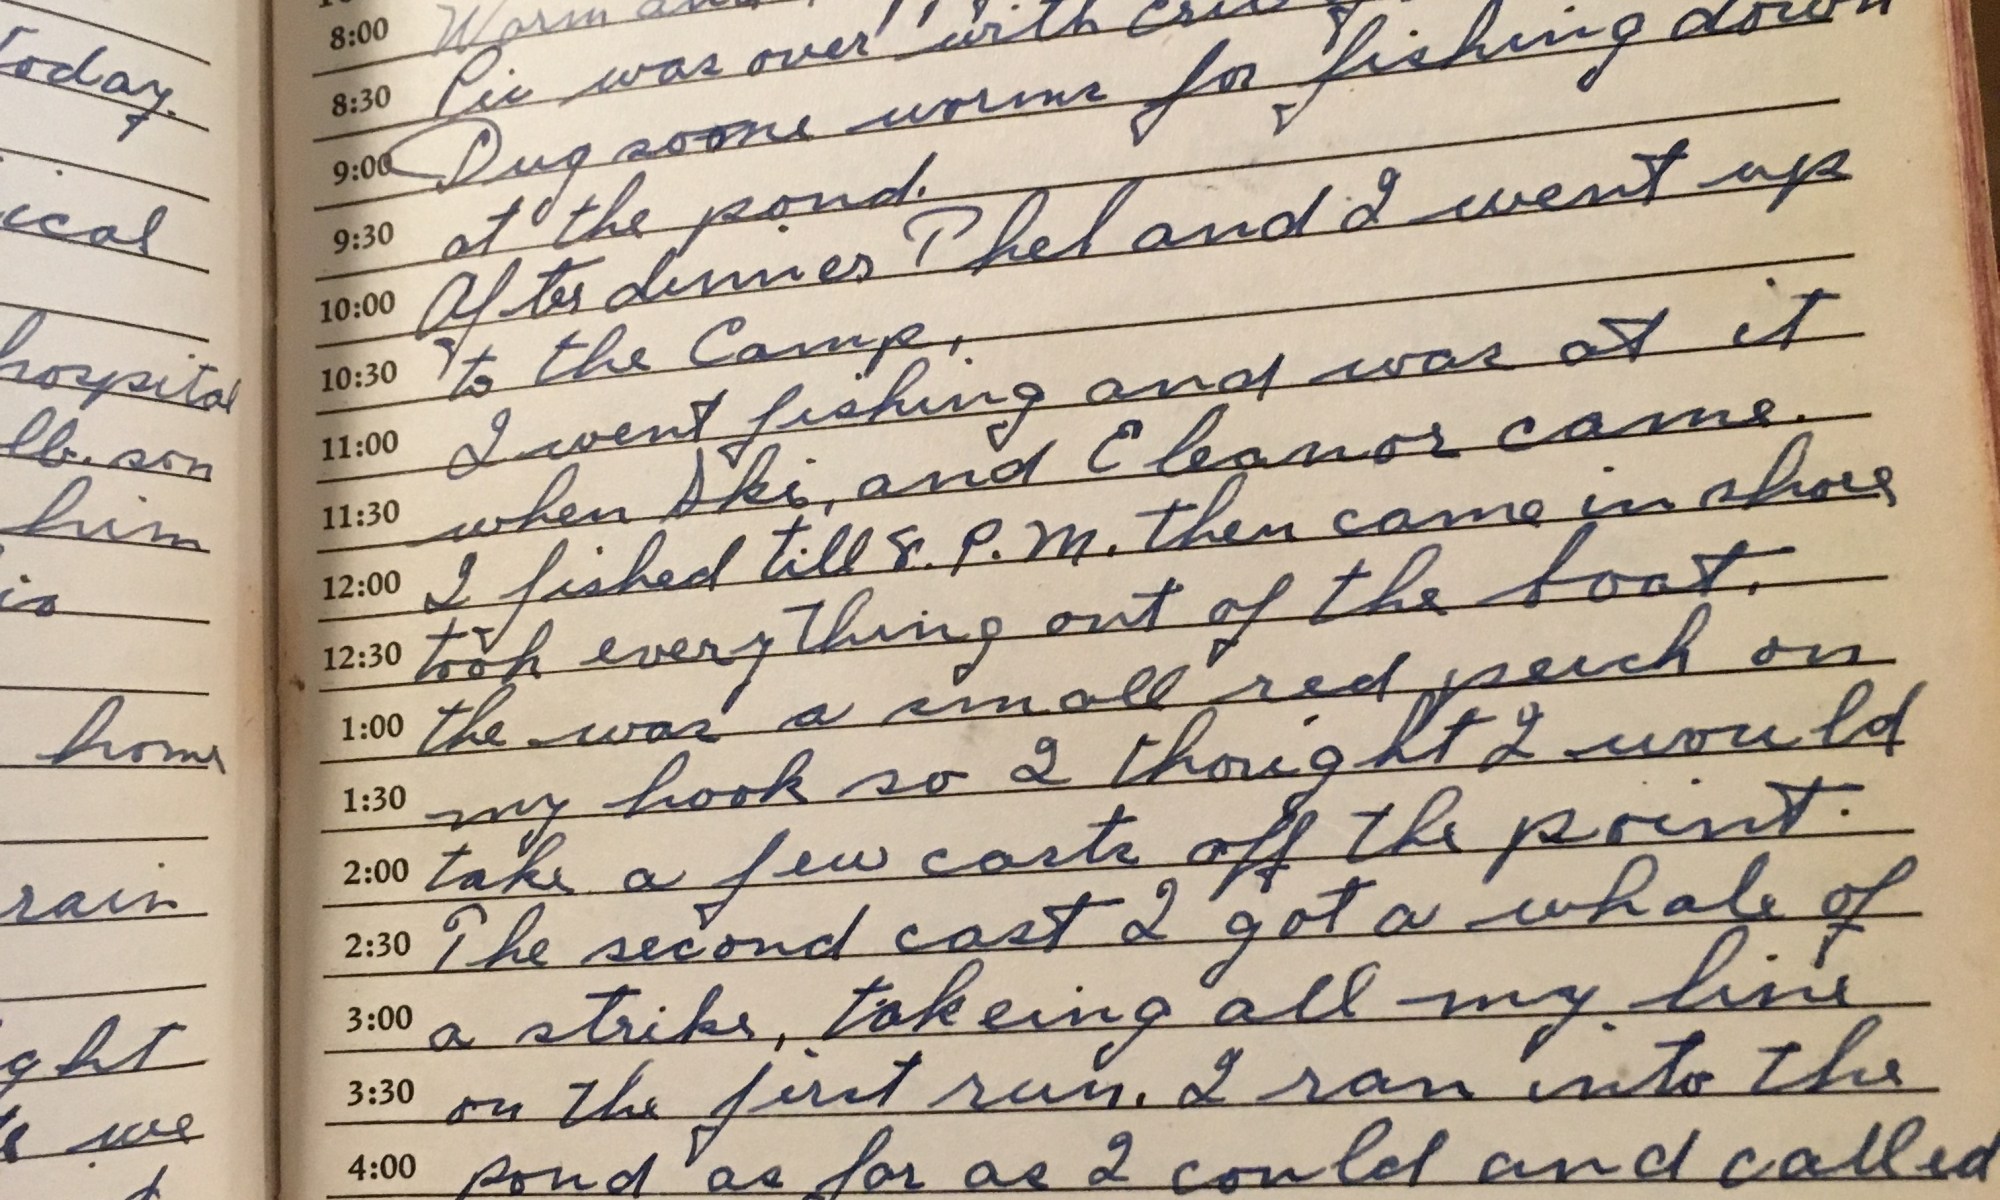 today.
ical
hospital
lb. son
him
is
home
rain
ght
we
8:00 Warm and
8:30 was over with
9:00 Dug soome worms for fishing down
9:30 at the pond.
10:00 After dinner Phel and I went up
10:30 to the Camp,
11:00 I went fishing and was at it
11:30 when Ski, and Eleanor came.
12:00 I fished till 8. P.M. then came in shore
12:30 took everything out of the boat.
1:00 the was a small red perch on
1:30 my hook so I thought I would
2:00 take a few casts off the point.
2:30 The second cast I got a whale of
3:00 a strike, takeing all my line
3:30 on the first run. I ran into the
4:00 pond as far as I could and called